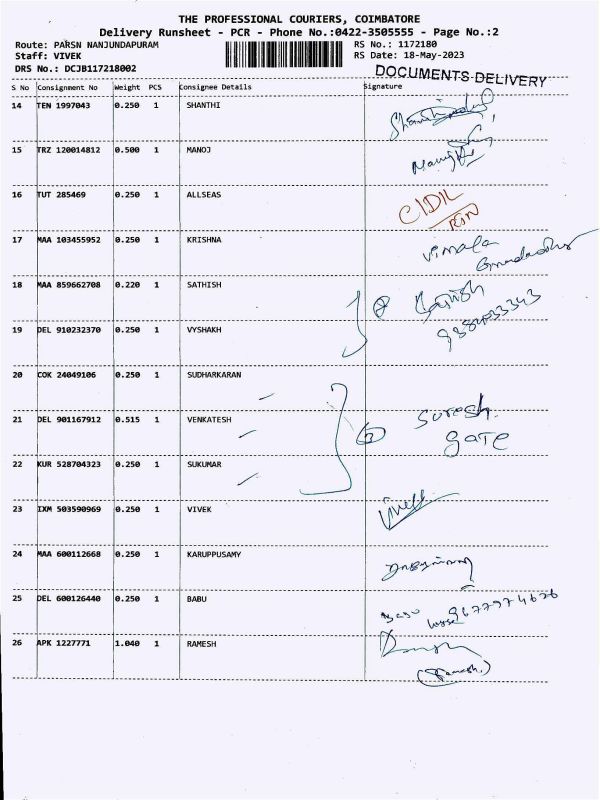 THE PROFESSIONAL COURIERS, COIMBATORE
Delivery Runsheet - PCR - Phone No.:0422-3505555 - Page No.:2
Route: PARSN NANJUNDAPURAM RS No.: 1172180
Staff: VIVEK RS Date: 18-May-2023
DRS No.: DCJB117218002 DOCUMENTS-DELIVERY
S No Consignment No Weight PCS Consignee Details Signature
14 TEN 1997043 0.250 1 SHANTHI
15 TRZ 120014812 0.500 1 MANOJ
16 TUT 285469 0.250 1 ALLSEAS
17 MAA 103455952 0.250 1 KRISHNA Vimala
18 MAA 859662708 0.220 1 SATHISH Sathish
19 DEL 910232370 0.250 1 VYSHAKH
20 COK 24049106 0.250 1 SUDHARKARAN
21 DEL 901167912 0.515 1 VENKATESH Suresh.
Gate
22 KUR 528704323 0.250 1 SUKUMAR
23 IXM 503590969 0.250 1 VIVEK Vivek
24 MAA 600112668 0.250 1 KARUPPUSAMY
25 DEL 600126440 0.250 1 BABU Babu 9677974626
26 APK 1227771 1.040 1 RAMESH
(Ramesh.)